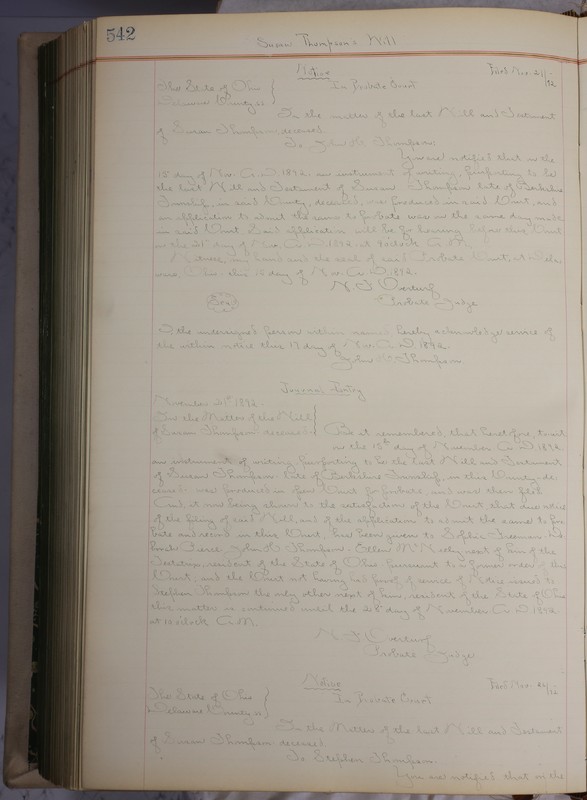 542
Susan Thompson's Will
Notice Filed Nov. 21/92
The State of Ohio } In Probate Court
Delaware County ss
In the matter of the last Will and Testament
of Susan Thompson, deceased.
To John H. Thompson:
You are notified that on the
15 day of Nov. A. D. 1892. an instrument of writing, purporting to be
the last Will and Testament of Susan Thompson late of Berkshire
Township, in said County, deceased, was produced in said Court, and
an application to admit the same to probate was on the same day made
in said Court. Said application will be for hearing before this Court
on the 21st day of Nov. A. D. 1892. at 9 o'clock A. M.
Witness, my hand and the seal of said Probate Court, at Dela-
ware, Ohio this 16 day of Nov. A. D. 1892.
N. F. Overturf
Seal Probate Judge
I, the undersigned person within named hereby acknowledge service of
the within notice this 17 day of Nov. A. D. 1892.
John H. Thompson
Journal Entry
November 21st 1892.
In the Matter of the Will }
of Susan Thompson deceased. Be it remembered, that heretofore, to wit
on the 15th day of November A. D. 1892
an instrument of writing purporting to be the last Will and Testament
of Susan Thompson late of Berkshire Township, in this County de-
ceased was produced in open Court for probate, and was then filed
And, it now being shown to the satisfaction of the Court that due notice
of the filing of said Will, and of the application to admit the same to pro-
bate and record in this Court, has been given to Sophia Freeman,
Pierce, John H. Thompson, Ellen McNeeley next of kin of the
Testatrix, resident of the State of Ohio pursuant to a former order of this
Court, and the Court not having had proof of service of Notice issued to
Stephen Thompson the only other next of kin, resident of the State of Ohio
this matter is continued until the 28 day of November A. D. 1892
at 10 o'clock A. M.
N. F. Overturf
Probate Judge
Notice Filed Nov.
The State of Ohio } In Probate Court
Delaware County ss
In the Matter of the last Will and Testament
of Susan Thompson deceased
To Stephen Thompson.
You are notified that on the